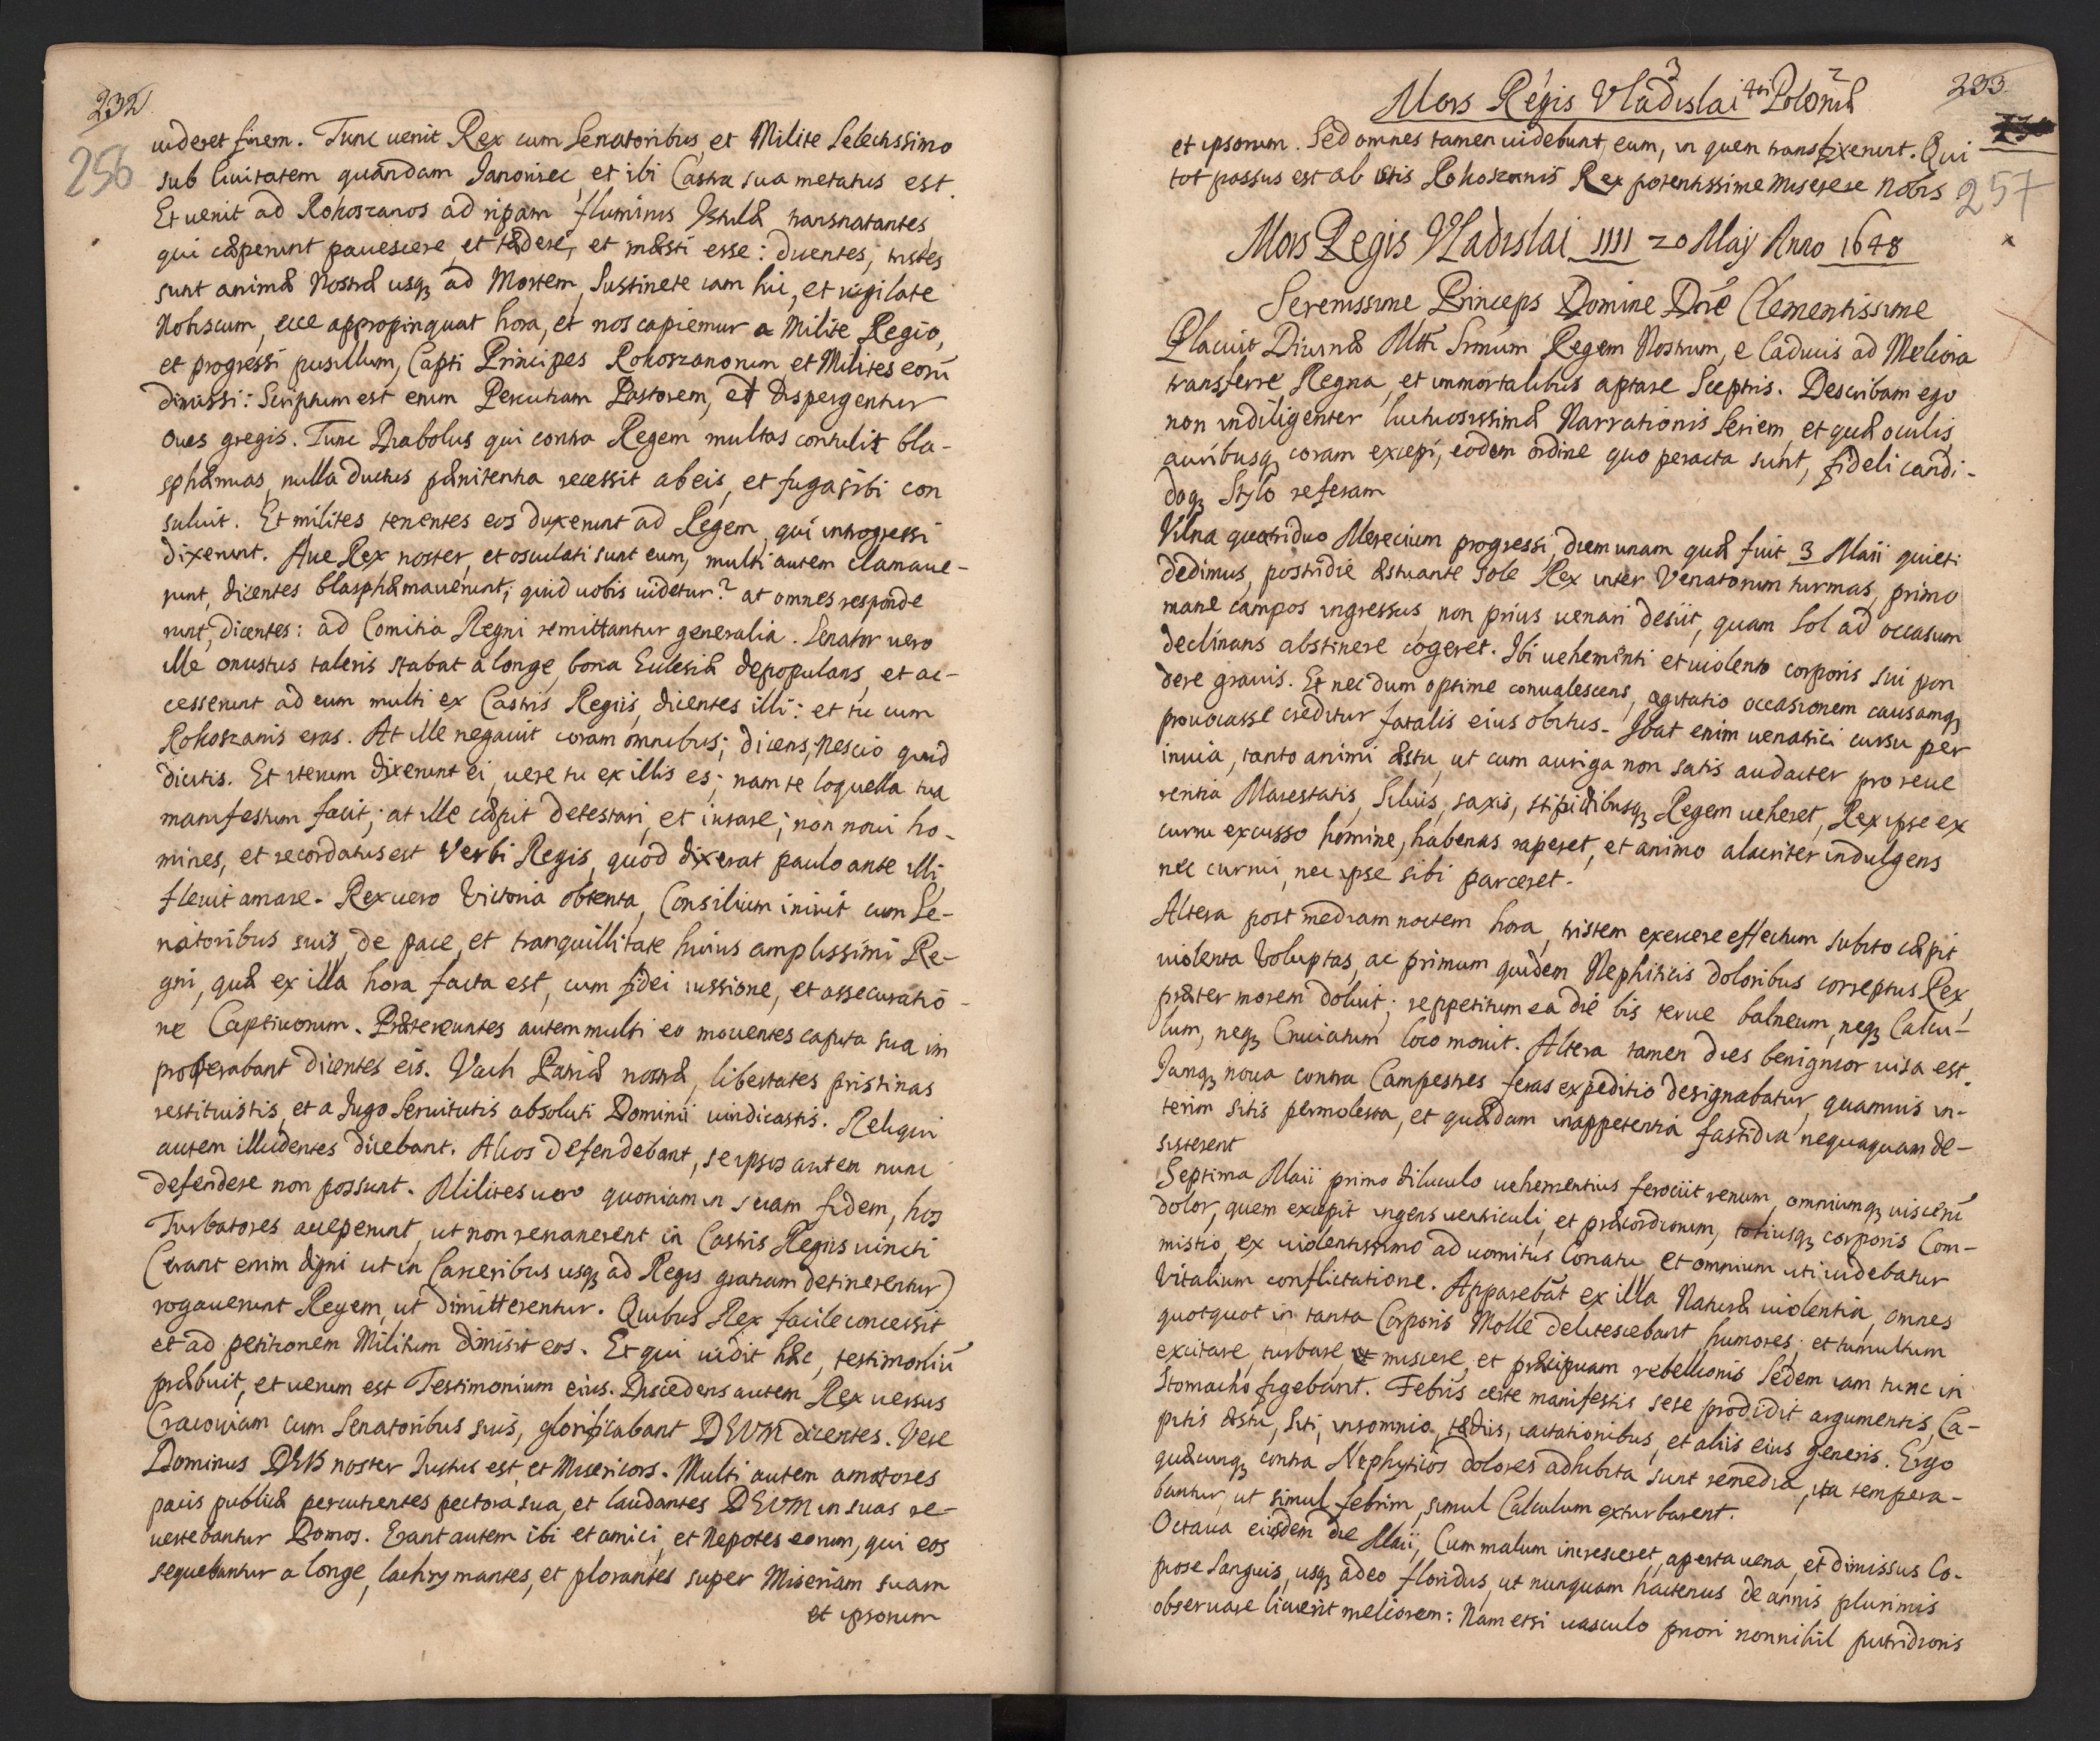 232
256
uideret finem. Tunc uenit Rex cum Senatoribus, et Milite Selectissimo
sub Ciuitatem quandam Janowiec et ibi Castra sua metatus est.
Et uenit ad Rokoszanos ad ripam fluminis Istulæ transnatantes
qui cæperunt pauescere, et tædere, et mæsti esse: dicentes, tristes
sunt animæ Nostræ usqȝ ad Mortem, Sustinete iam hic, et uigilate
Nobiscum, ecce appropinquat hora, et nos capiemur a Milite Regio,
et progressi pusillum, Capti Principes Rokoszanorum et Milites eorū
dimissi: Scriptum est enim Percutiam Pastorem, et dispergentur
oues gregis. Tunc Diabolus qui contra Regem multas contulit bla-
sphæmias, nulla ductus pænitentia recessit ab eis, et fuga sibi con
suluit. Et milites tenentes eos duxerunt ad Regem, qui introgressi
dixerunt. Aue Rex noster, et osculati sunt eum, multi autem clamaue-
runt, dicentes blasphæmauerunt, quid uobis uidetur? at omnes responde
runt, dicentes: ad Comitia Regni remittantur generalia. Senator uero
ille onustus taleris stabat a longe, bona Eclesiæ depopulans, et ac-
cesserunt ad eum multi ex Castris Regiis, dicentes illi: et tu cum
Rokoszanis eras. At ille negauit coram omnibus; dicens, Nescio quid
dicitis. Et iterum dixerunt ei, uere tu ex illis es; nam te loquella tua
manifestum facit; at ille cæpit detestari, et iurare; non noui ho-
mines, et recordatus est Verbi Regis, quod dixerat paulo ante illi
fleuit amare. Rex uero Victoria obtenta, Consilium iniuit cum Se-
natoribus suis, de pace, et tranquillitate huius amplissimi Re-
gni, quæ ex illa hora facta est, cum fidei iussione, et assecuratio-
ne Captiuorum. Prætereuntes autem multi eo mouentes caputa sua im
properabant dicentes eis. Vach Patriæ nostræ, libertates pristinas
restituistis, et a Jugo Seruitutis absoluti Dominii uindicastis. Reliqui
autem illudentes dicebant. Alios defendebant, se ipsos autem nunc
defendere non possunt. Milites uero quoniam in suam fidem, hos
Turbatores acceperunt, ut non remanerent in Castris Regiis uincti
(erant enim digni ut in Carceribus usqȝ ad Regis gratiam detinerentur)
rogauerunt Regem, ut dimitterentur. Quibus Rex facile concessit
et ad petitionem Militum dimisit eos. Et qui uidit hæc, testimoniū
præbuit, et uerum est Testimonium eius. Discedens autem Rex uersus
Cracouiam cum Senatoribus suis, glorificabant DEUM dicentes. Vere
Dominus DEUS noster Justus est, et Misericors. Multi autem amatores
pacis publicæ percutientes pectora sua, et laudantes DEUM in suas re-
uertebantur Domos. Erant autem ibi et amici, et Nepotes eorum, qui eos
sequebantur a longe, lachrymantes, et plorantes super Miseriam suam
et ipsorum
Mors Regis Vladislai 4ti Poloniæ
233
257
et ipsorum. Sed omnes tamen uidebunt, eum, in quem transfixerunt. Qui
tot passus est ab istis Rokoszanis Rex potentissime miserere Nobis
Mors Regis Vladislai IIII 20 Maij Anno 1648
Serenissime Princeps Domine Dne Clementissime
Placuit Diuinæ Mtti Srmum Regem Nostrum, e Caducis ad Meliora
transferre Regna, et immortalibus aptare Sceptris. Describam ego
non indiligenter luctuosissimæ Narrationis Seriem, et quæ oculis
auribusqȝ coram excepi, eodem ordine quo peracta sunt, fideli candi-
doqȝ Stylo referam
Vilna quatriduo Merecium progressi, diem unam quæ fuit 3 Maii quieti
dedimus, postridie æstuante Sole Rex inter Venatorum turmas, primo
mane campos ingressus, non prius uenari desiit, quam Sol ad occasum
declinans abstinere cogeret. Ibi uehementi et uiolento corporis sui pon
dere grauis. Et nec dum optime conualescens, agitatio occasionem causamqȝ
prouocasse creditur fatalis eius obitus. Ibat enim uenatici cursu per
inuia, tanto animi æstu, ut cum auriga non satis audacter pro reue
rentia Maiestatis, Siluis, saxis, stipidibusqȝ Regem ueheret, Rex ipse ex
curru excusso homine, habenas raperet, et animo alacriter indulgens
nec currui, nec ipse sibi parceret.
Altera post mediam noctem hora, tristem exercere effectum subito cæpit
uiolenta Voluptas, ac primum quidem Nephiticis doloribus correptus Rex
præter morem doluit; reppetitum ea die bis terue balneum, neqȝ Calcu-
lum, neqȝ Cruciatum loco mouit. Altera tamen dies benignior uisa est.
Jamqȝ noua contra Campestres feras expeditio designabatur, quamuis in-
terim sitis permolesta, et quædam inappetentia fastidia nequaquam de-
sisterent
Septima Maii primo diluculo uehementius ferociit renum, omniumqȝ uiscerū
dolor, quem excepit ingens uentriculi, et præcordiorum, totiusqȝ corporis Com-
mistio, ex uiolentissimo ad uomitus Conatu et omnium uti uidebatur
Vitalium conflictatione. Apparebat ex illa Naturæ uiolentia, omnes
quotquot in tanta Corporis Molle delitescebant humores; et tumultum
excitare, turbare, et miscere, et præcipuam rebellionis Sedem iam tunc in
Stomacho figebant. Febris certe manifestis sese prodidit argumentis, Ca-
pitis æstu, Siti, insomnia, tædiis, iactationibus, et aliis eius generis. Ergo
quæcunqȝ contra Nephyticos dolores adhibita sunt remedia, ita tempera-
bantur, ut simul febrim, simul Calculum exturbarent.
Octaua eiusdem die Maii, Cum malum incresceret, aperta uena, et dimissus Co-
piose Sanguis, usqȝ adeo floridus, ut nunquam hactenus de annis plurimis
obseruare licuerit meliorem: Nam etsi uasculo priori nonnihil putridioris